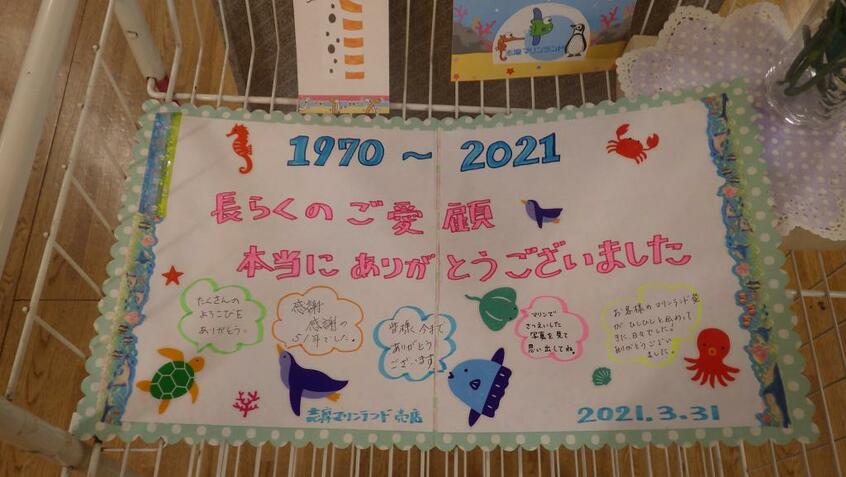 志摩マリンランド
1970～2021
長らくのご愛顧
本当にありがとうございました
たくさんの
よろこびを
ありがとう。
感謝
感謝の
51年でした。
皆様、今まで
ありがとう
ございます
マリンで
さつえいした
写真を見て
思い出してね。
お客様のマリンランド愛
がひしひしと伝わって
きた日々でした!
ありがとうござい
ました。
志摩マリンランド 売店
2021.3.31